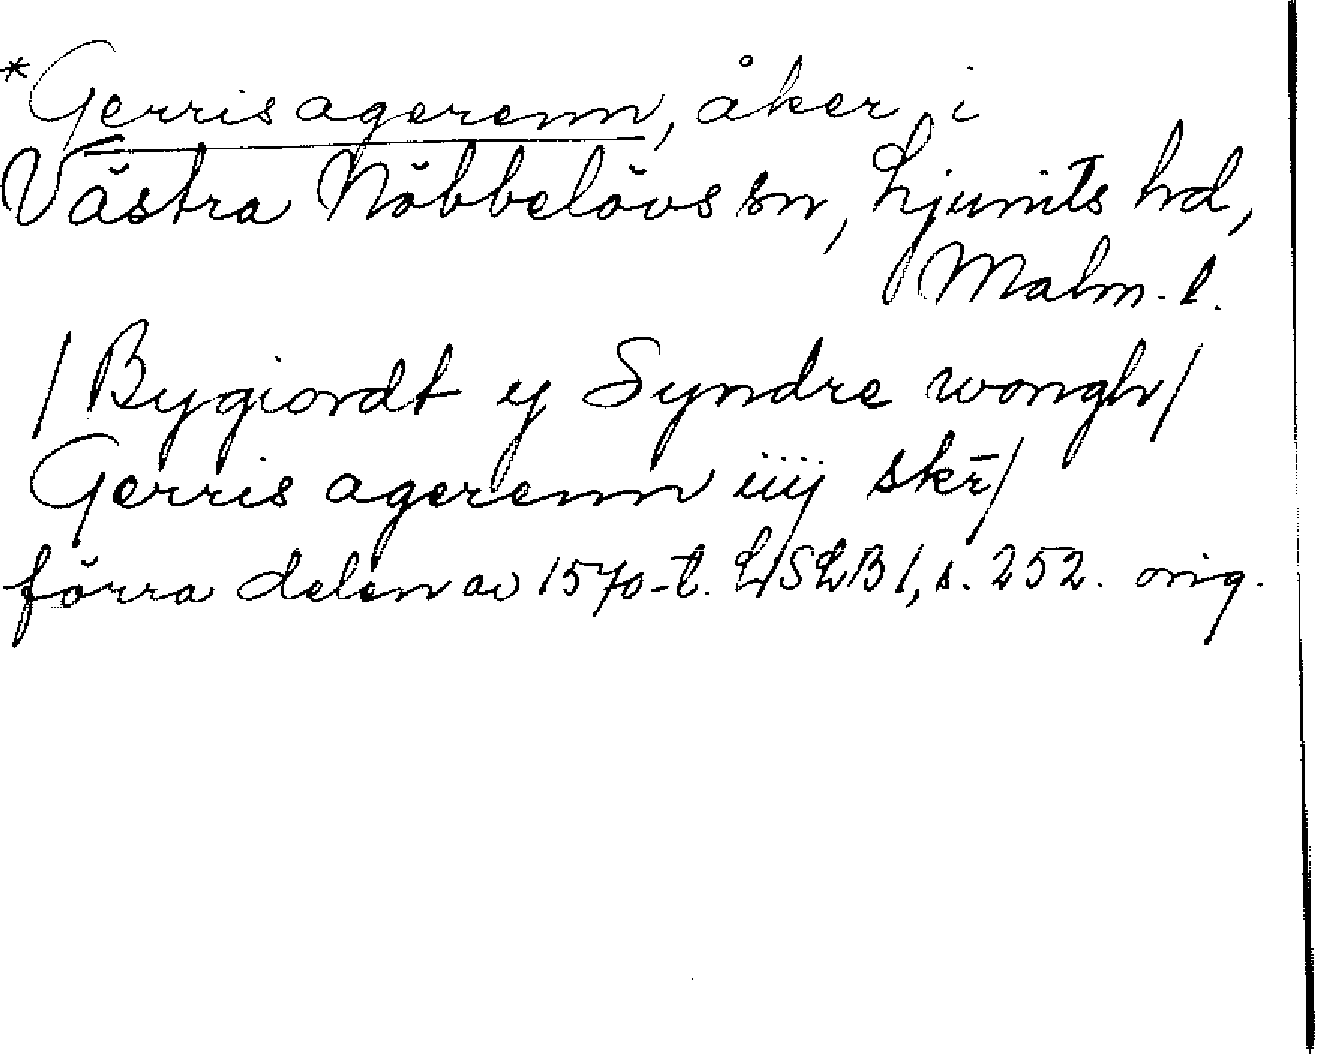 *Gerris agerenn, åker, i
Västra Nöbbelövs sn, Ljunits hd,
Malm. l.
/Bygiordt y Syndre wongh/
Gerris agerenn iiij skr̄/
förra delen av 1570-t. LSLB 1, s. 252. orig.